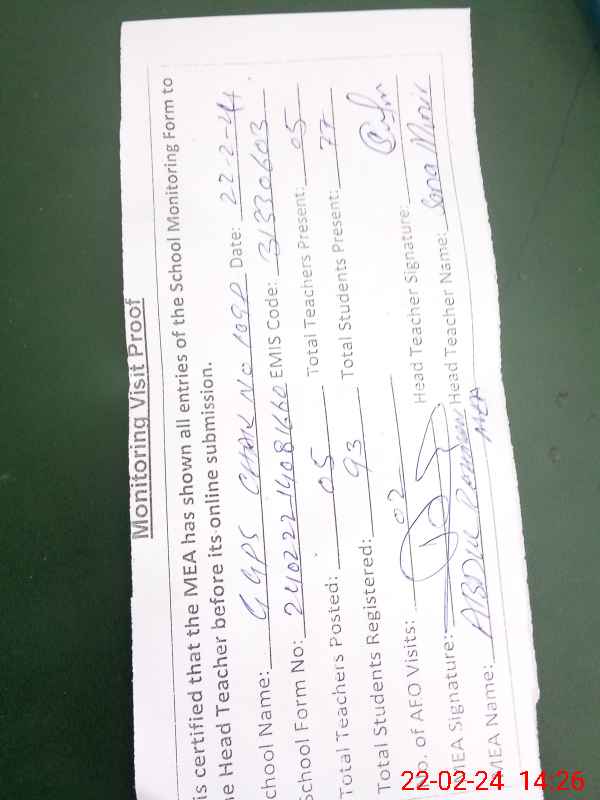 Monitoring Visit Proof
is certified that the MEA has shown all entries of the School Monitoring Form to
he Head Teacher before its online submission.
chool Name: GGPS CHAK NO 109P Date: 22-2-24
School Form No: 240222140816 EMIS Code: 31330603
Total Teachers Posted: 05 Total Teachers Present: 05
Total Students Registered: 93 Total Students Present: 77
o. of AFO Visits: 02 Head Teacher Signature:
MEA Signature: Head Teacher Name: Sana
MEA Name: ABDUL
MEA
22-02-24 14:26